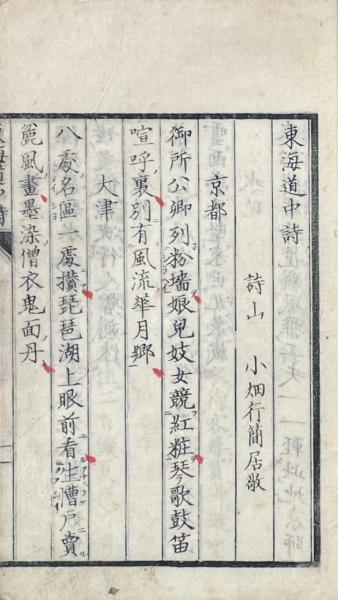 東海道中詩
詩山 小畑行簡居敬
京都
御所公卿列粉墻娘兒妓女競紅粧琴歌鼓笛
喧呼裏別有風流華月鄉
大津
八處名區一處攢琵琶湖上眼前看生憎戶賣
兔風畫墨染僧衣鬼面丹